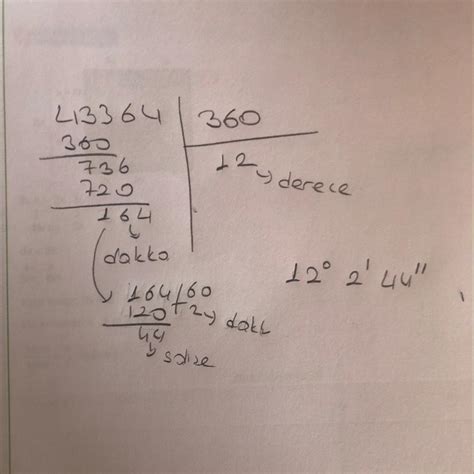 43364 | 360
360
736
12 → derece
720
164
dakka
12° 2' 44"
164 | 60
120 2 → dakk
44
salise